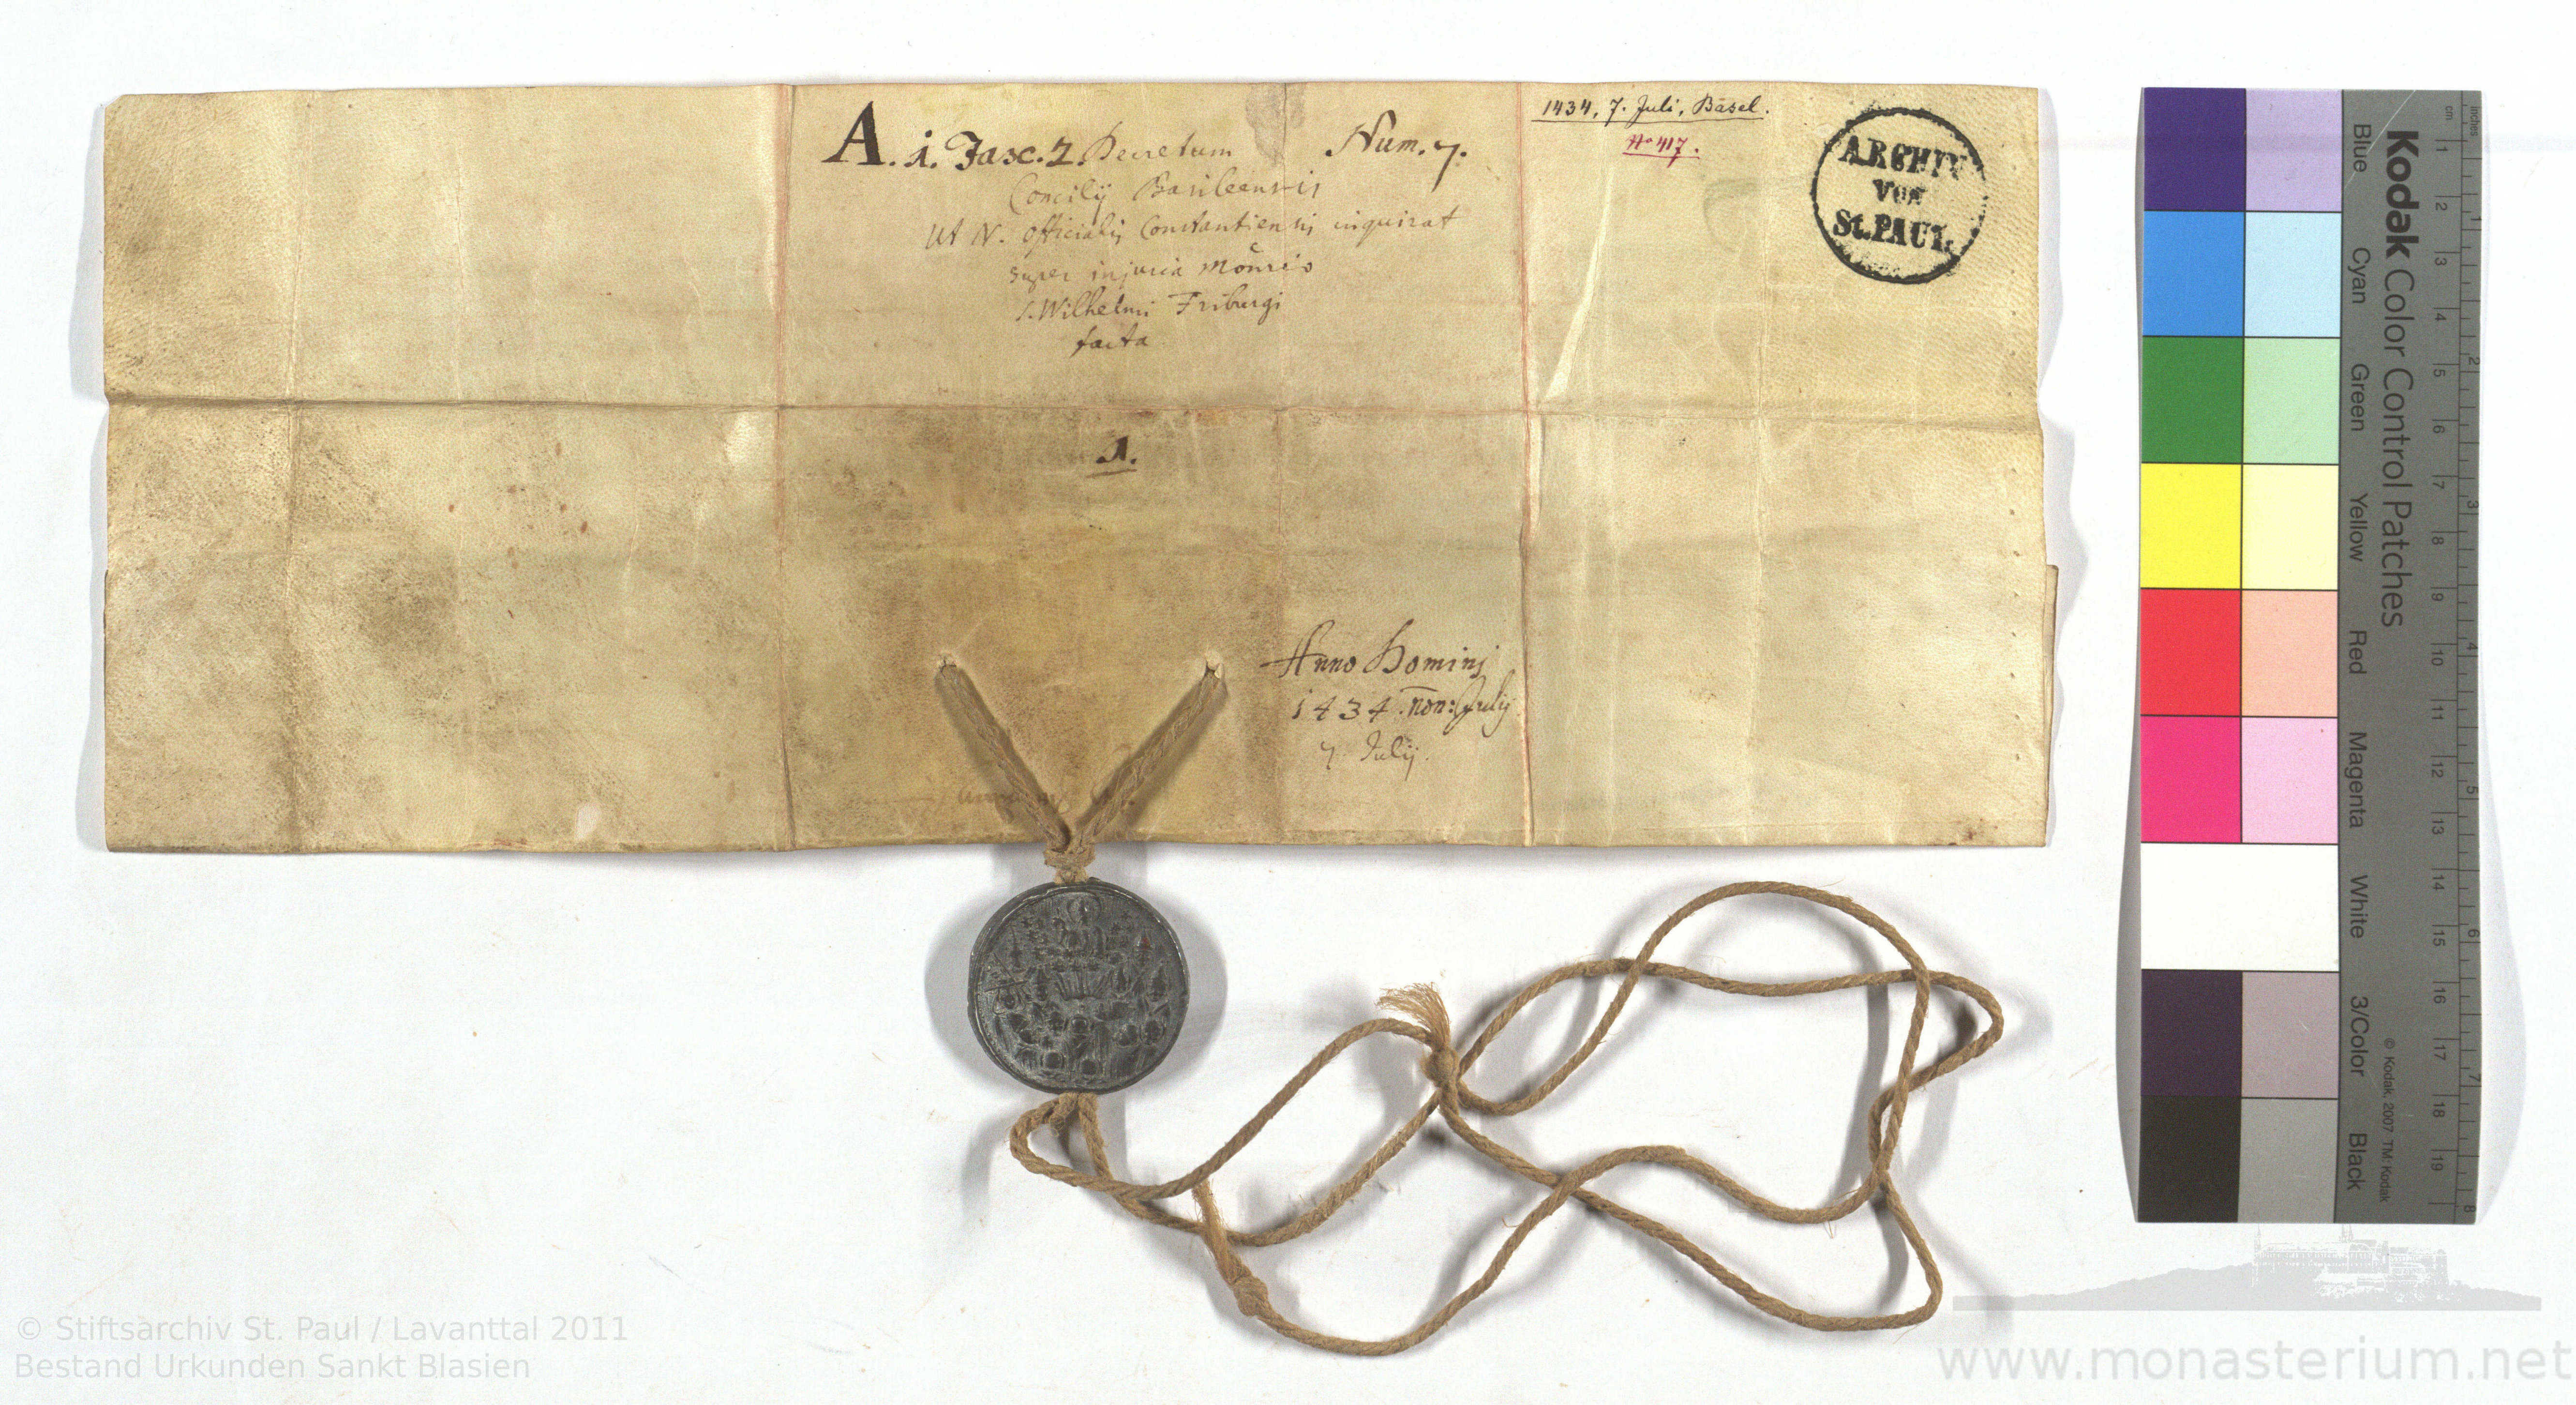 A. i. Fasc. 2. Decretum Num. 7.
Concilÿ Basileensis
Ut N. officialis Constantiensis inquirat
super injuria Monrio
S. Wilhelmi Friburgi
facta
1434, 7. Juli, Basel.
No 417.
ARCHIV
VON
St. PAUL
1.
Anno Dominj
1434. non: Julÿ
7. Julÿ.
Kodak Color Control Patches
Blue Cyan Green Yellow Red Magenta White 3/Color Black
© Kodak, 2007 TM: Kodak
cm 1 2 3 4 5 6 7 8 9 10 11 12 13 14 15 16 17 18 19
inches 1 2 3 4 5 6 7 8
© Stiftsarchiv St. Paul / Lavanttal 2011
Bestand Urkunden Sankt Blasien
www.monasterium.net